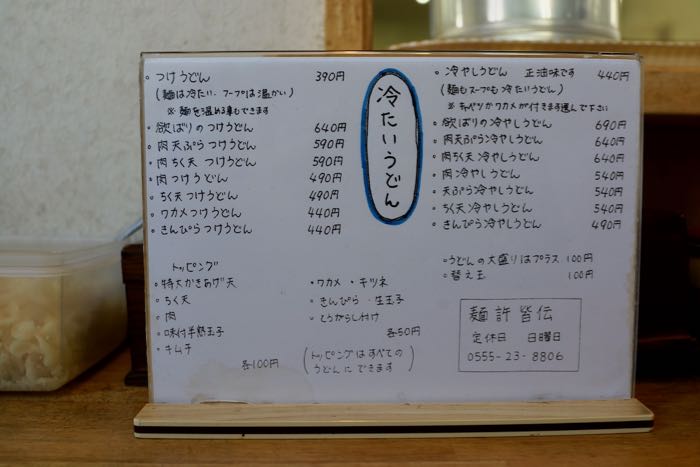 冷たいうどん
。つけうどん 390円
(麺は冷たい、スープは温かい)
※ 麺を温める事もできます
。欲ばりのつけうどん 640円
。肉天ぷらつけうどん 590円
。肉ちく天つけうどん 590円
。肉つけうどん 490円
。ちく天つけうどん 490円
。ワカメつけうどん 440円
。きんぴらつけうどん 440円
。冷やしうどん 正油味です 440円
(麺もスープも冷たいうどん)
※ キャベツかワカメが付きます選んで下さい
。欲ばりの冷やしうどん 690円
。肉天ぷら冷やしうどん 640円
。肉ちく天冷やしうどん 640円
。肉冷やしうどん 540円
。天ぷら冷やしうどん 540円
。ちく天冷やしうどん 540円
。きんぴら冷やしうどん 490円
トッピング
。特大かきあげ天
。ちく天
。肉
。味付半熟玉子
。キムチ
各100円
。ワカメ・キツネ
。きんぴら・生玉子
。とうがらし付け
各50円
(トッピングはすべての
うどんにできます)
。うどんの大盛りはプラス 100円
。替え玉 100円
麺許皆伝
定休日 日曜日
0555-23-8806